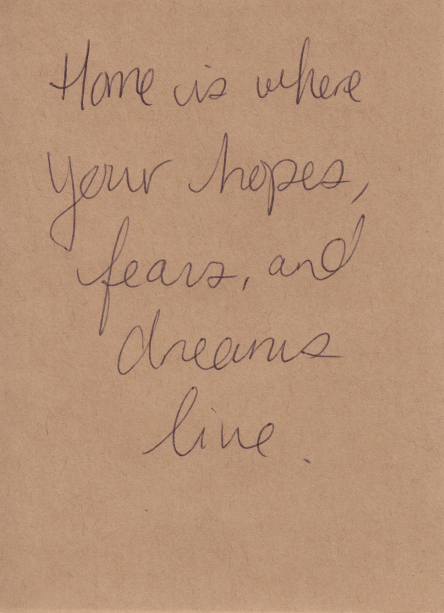 Home is where
your hopes,
fears, and
dreams
live.